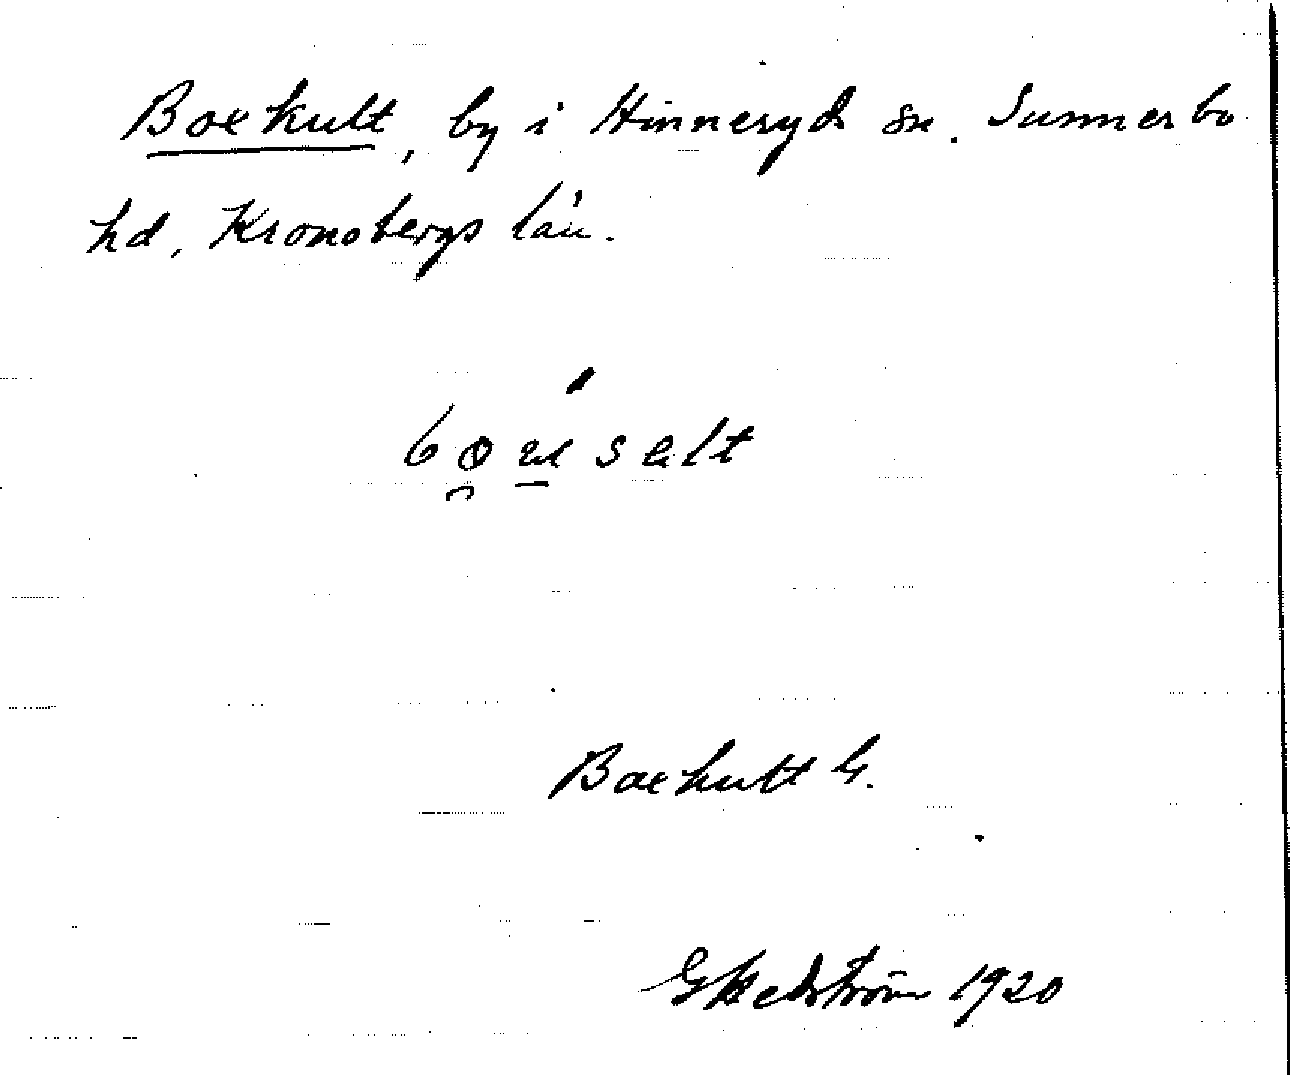 Boekult, by i Hinneryds sn. Sunnerbo
hd, Kronobergs län.
Boekult G.
G Hedström 1920